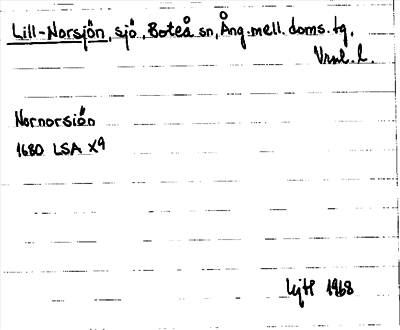 Lill-Norsjön, sjö, Boteå sn, Ång. mell. doms. tg.
Vrml. l.
Nornorsiön
1680 LSA X9
LijH 1968